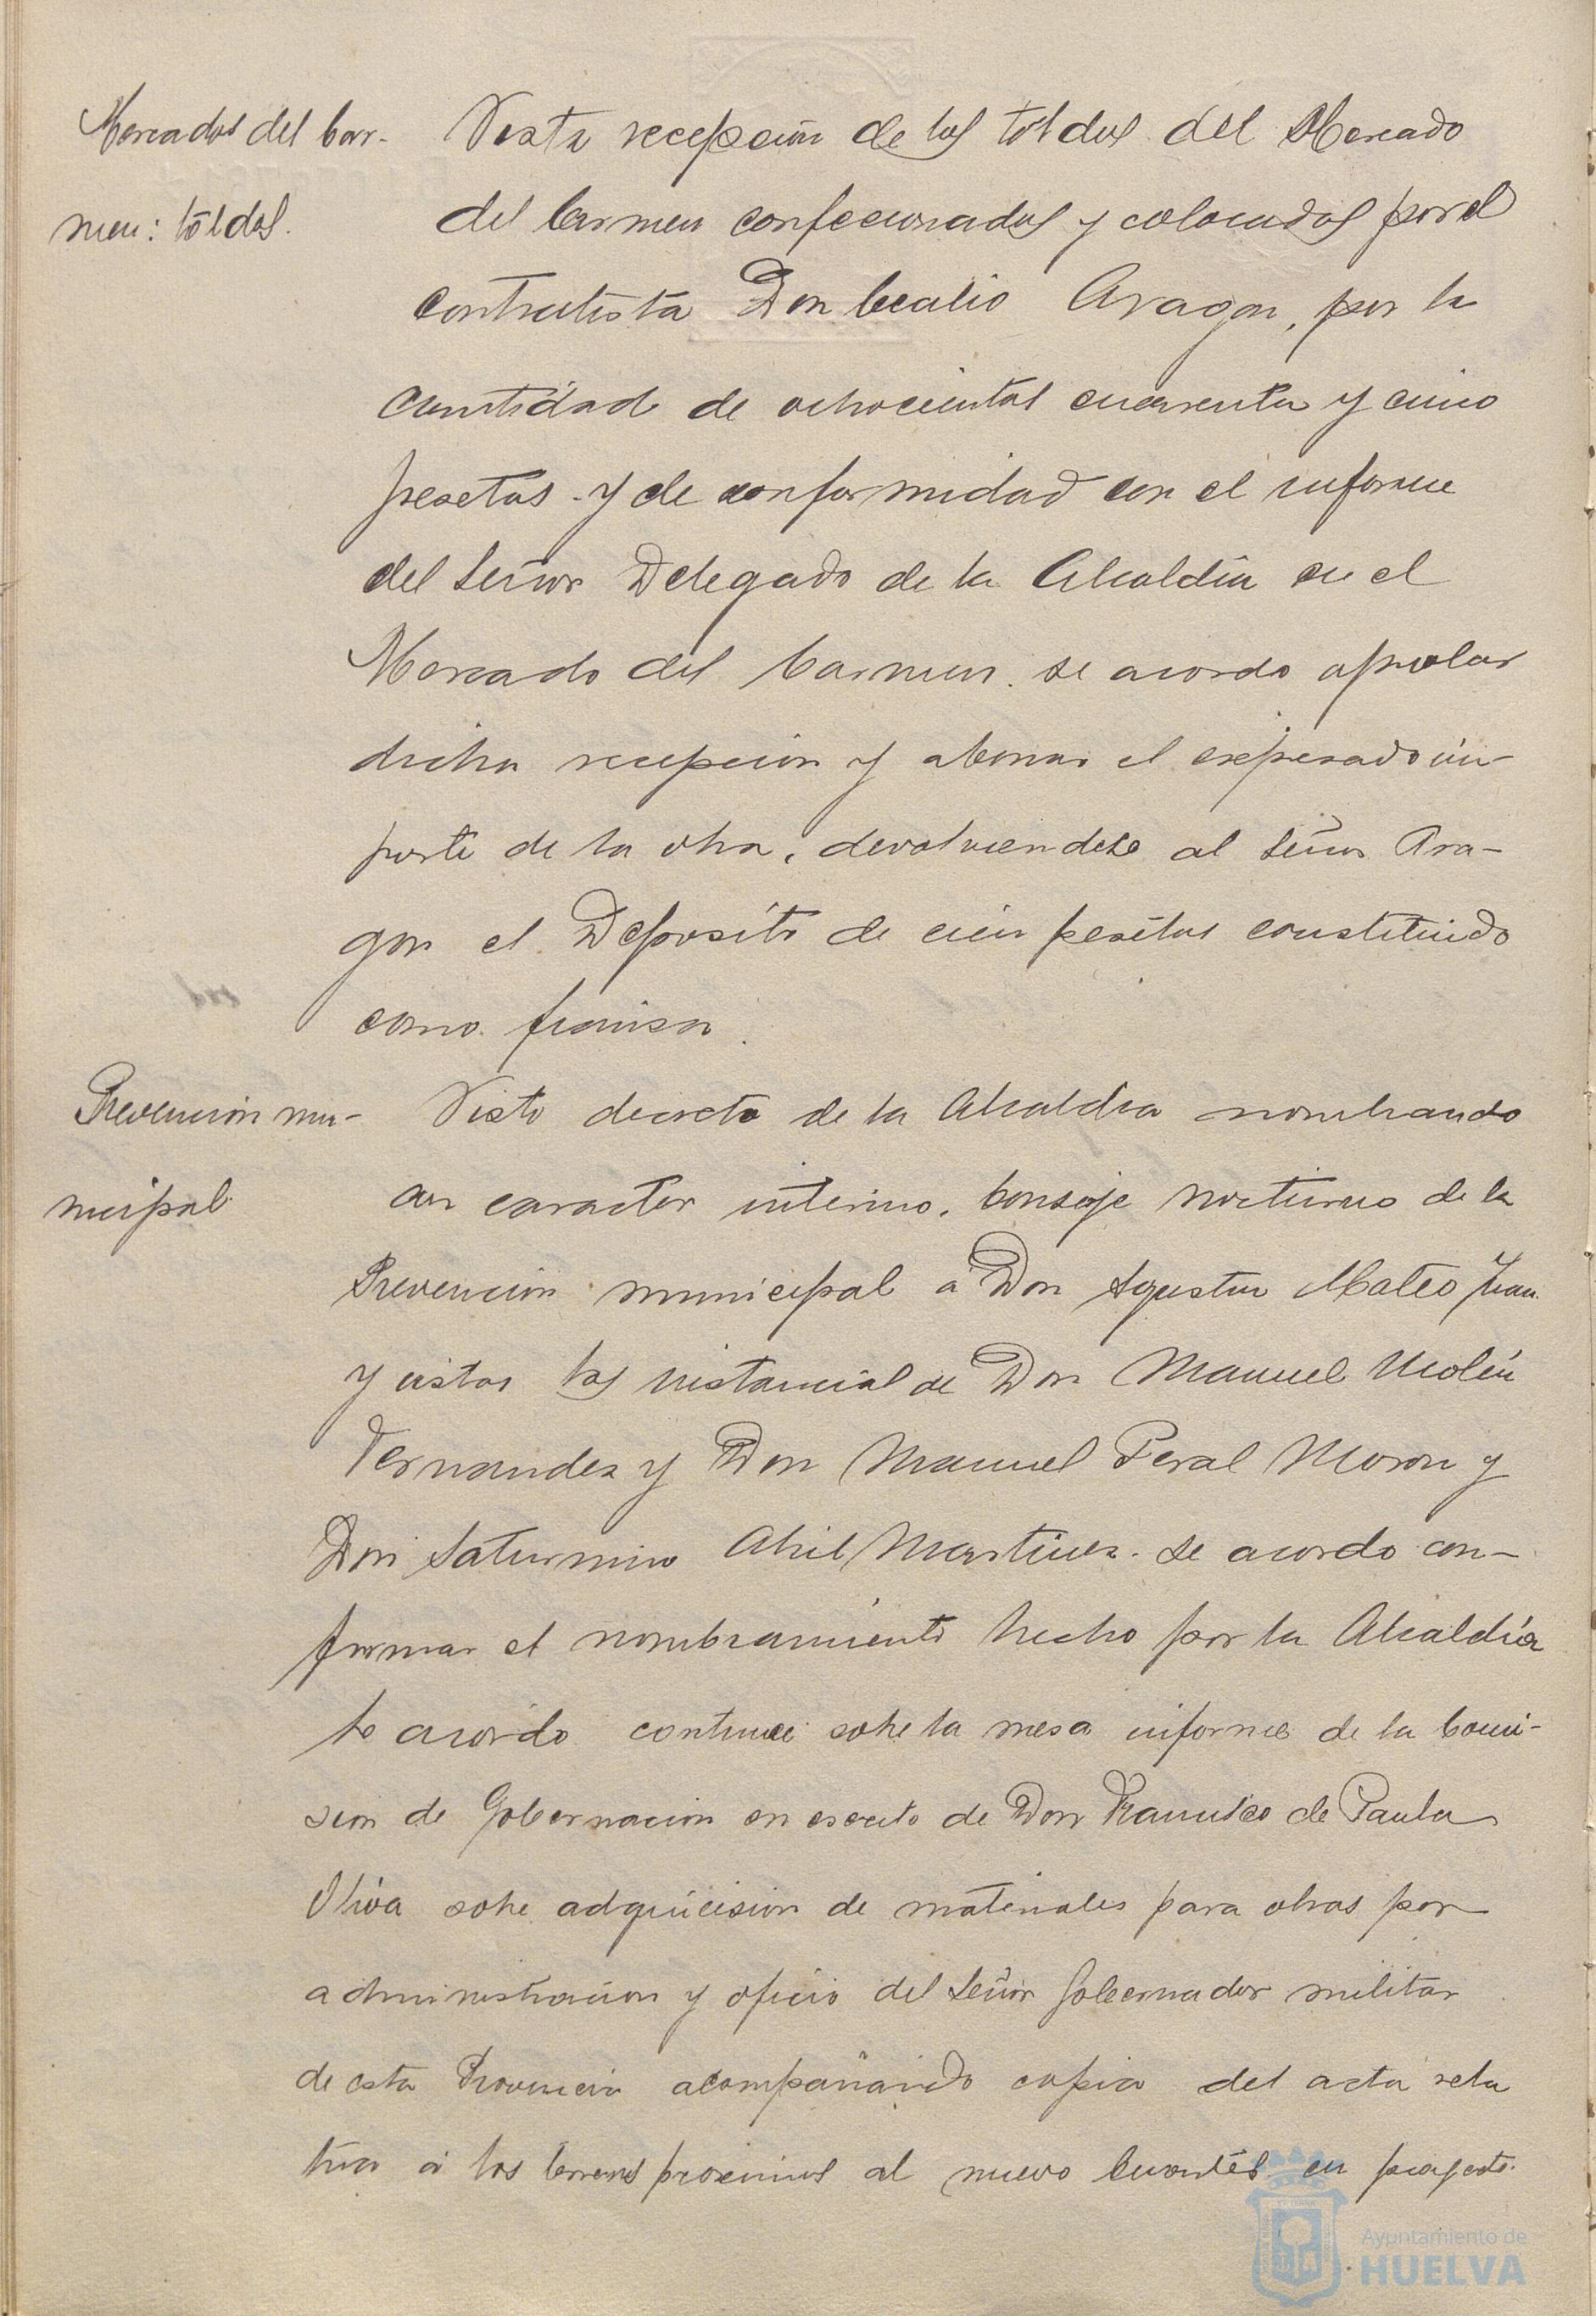 Mercados del Car-
men: tóldos.
Vista recepción de los tóldos del Mercado
del Carmen confeccionados y colocados por el
contratista Don Cecilio Aragon, por la
cantidad de ochocientas cuarenta y cinco
pesetas y de conformidad con el informe
del Señor Delegado de la Alcaldía en el
Mercado del Carmen. se acordo aprobar
dicha recepción y abonar el expresado im-
porte de la obra, devolviendose al Señor Ara-
gon el Deposito de cien pesetas constituido
como fianza.
Prevención mu-
nicipal
Visto decreto de la Alcaldia nombrando
con caracter interino, Conserje nocturno de la
Prevención municipal a Don Agustin Mateo
y vistas las instancias de Don Manuel
Fernandez y Don Manuel Peral Moron y
Don Saturnino Abril Martinez. se acordo con-
firmar el nombramiento hecho por la Alcaldía
Se acordo continue sobre la mesa informe de la Comi-
sion de Gobernacion en escrito de Don Francisco de Paula
Oliva sobre adquicision de materiales para obras por
administracion y oficio del Señor Gobernador militar
de esta Provincia acompañando copia del acta rela
tiva a los terrenos proximos al nuevo Cuartel en proyecto.
Ayuntamiento de
HUELVA